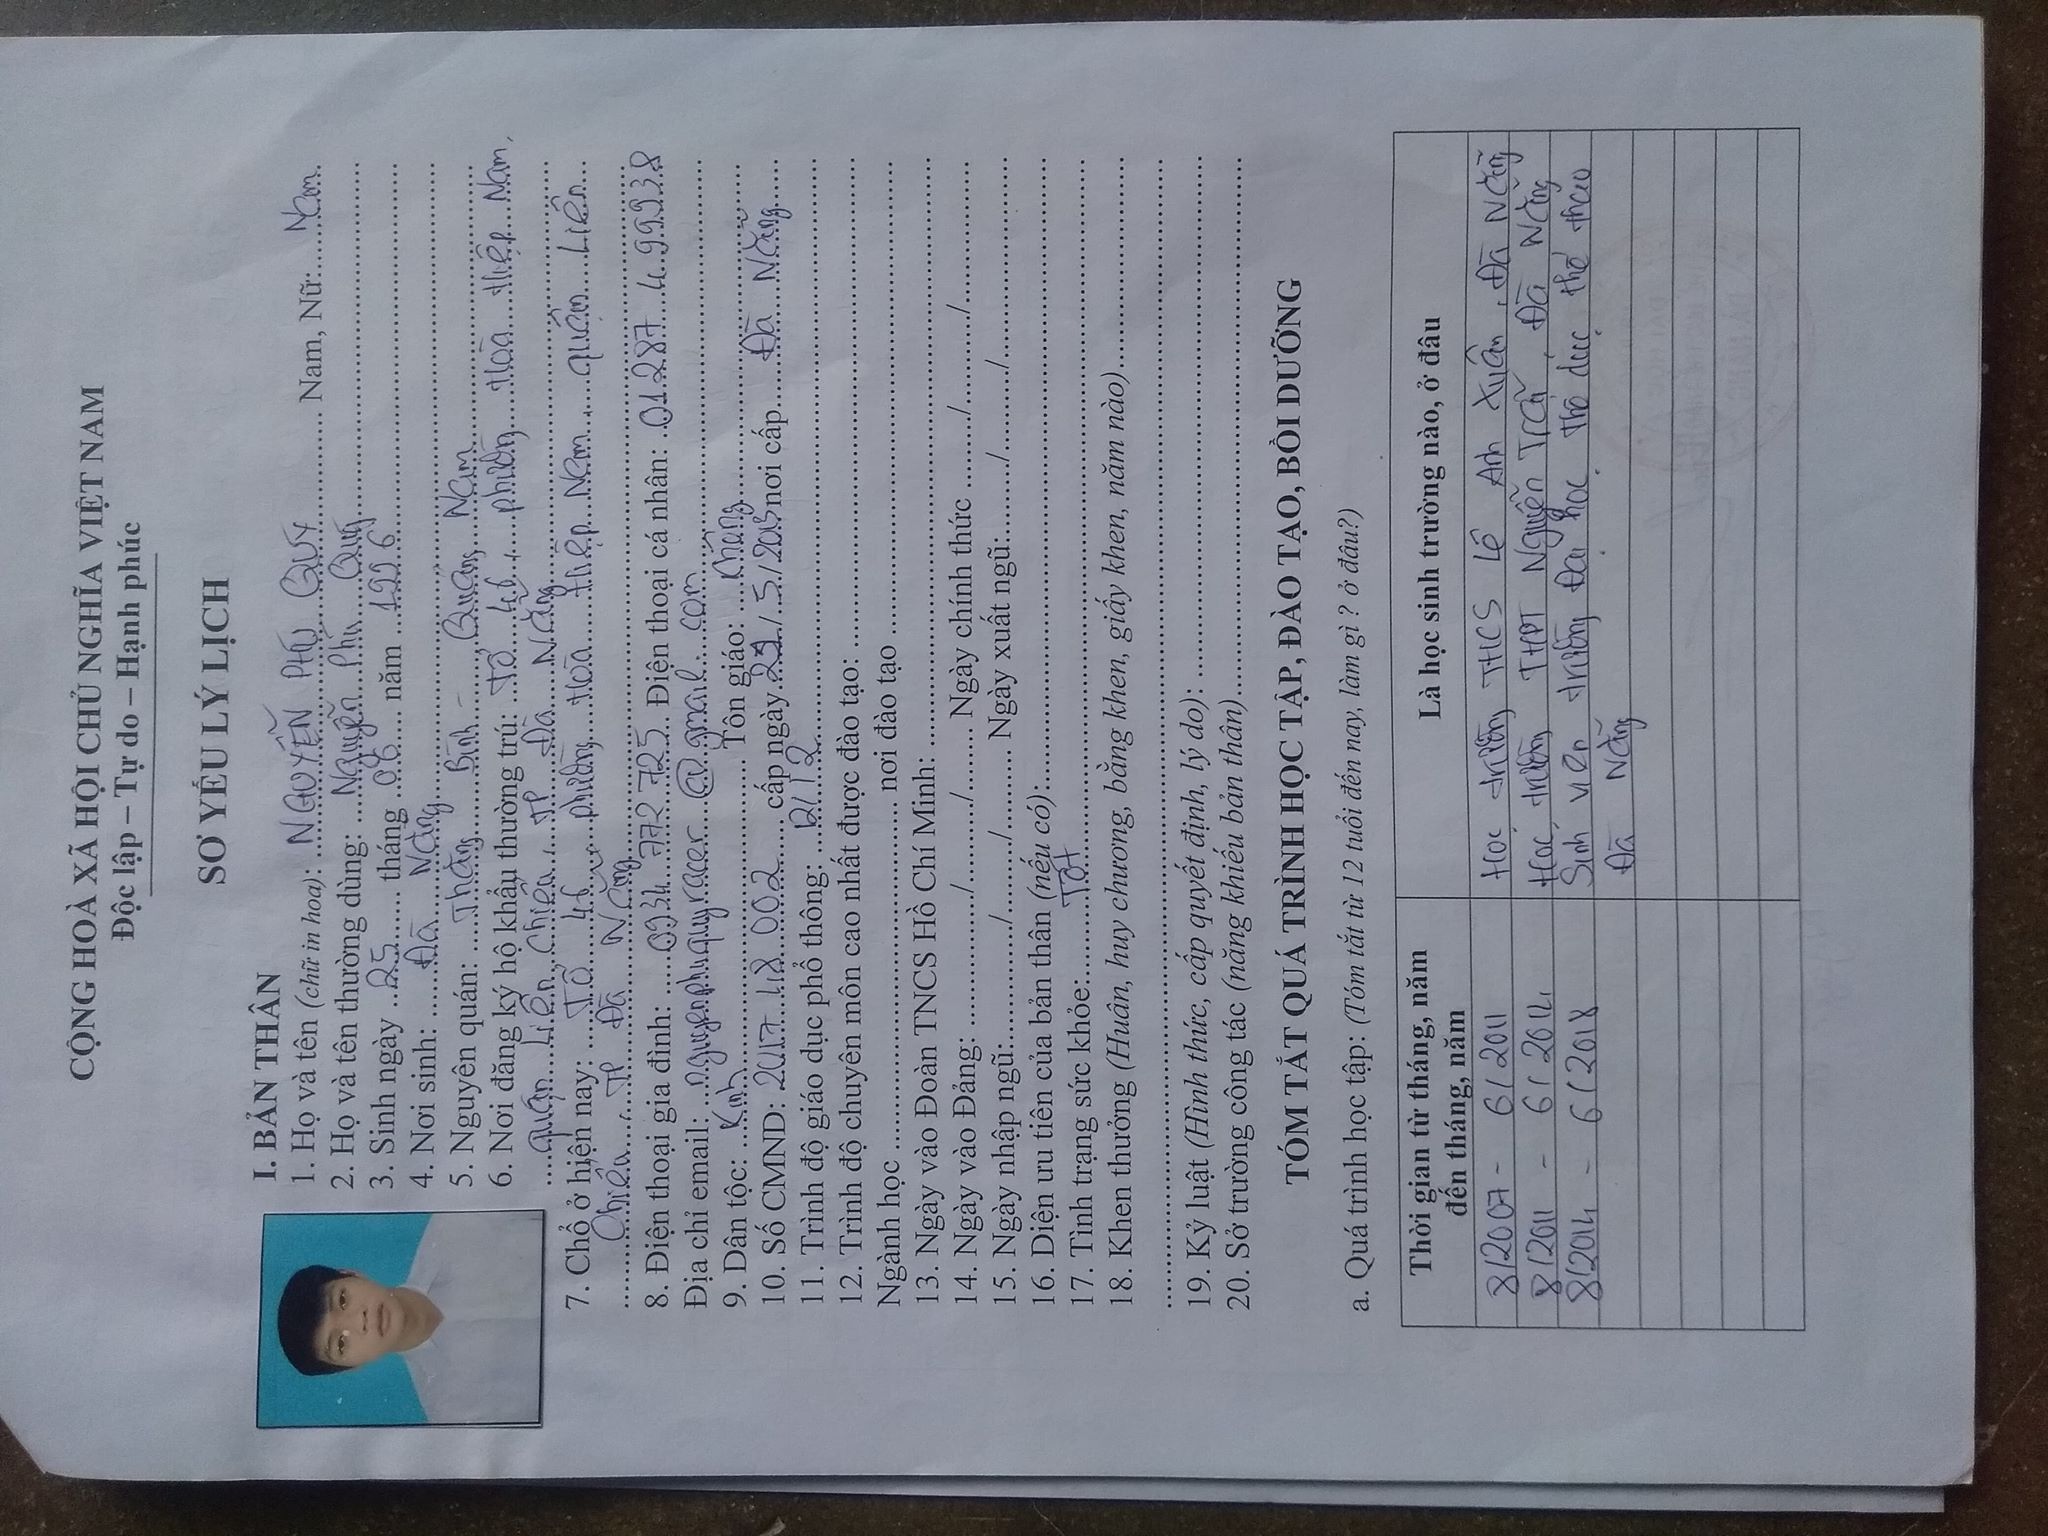 CỘNG HOÀ XÃ HỘI CHỦ NGHĨA VIỆT NAM
Độc lập – Tự do – Hạnh phúc
SƠ YẾU LÝ LỊCH
I. BẢN THÂN
1. Họ và tên (chữ in hoa): NGUYỄN PHÚ QUÝ Nam, Nữ: Nam
2. Họ và tên thường dùng: Nguyễn Phú Quý
3. Sinh ngày 25 tháng 06 năm 1996
4. Nơi sinh: Đà Nẵng
5. Nguyên quán: Thăng Bình - Quảng Nam
6. Nơi đăng ký hộ khẩu thường trú: Tổ 46, phường Hoà Hiệp Nam,
quận Liên Chiểu, TP Đà Nẵng
7. Chỗ ở hiện nay: Tổ 46, phường Hoà Hiệp Nam, quận Liên
Chiểu, TP Đà Nẵng
8. Điện thoại gia đình: 0934 772 725 Điện thoại cá nhân: 01287 499938
Địa chỉ email: nguyenphuquyracer@gmail.com
9. Dân tộc: Kinh Tôn giáo: Không
10. Số CMND: 201718002 cấp ngày 29/5/2013 nơi cấp Đà Nẵng
11. Trình độ giáo dục phổ thông: 12/12
12. Trình độ chuyên môn cao nhất được đào tạo:
Ngành học nơi đào tạo
13. Ngày vào Đoàn TNCS Hồ Chí Minh:
14. Ngày vào Đảng: / / Ngày chính thức / /
15. Ngày nhập ngũ: / / Ngày xuất ngũ: / /
16. Diện ưu tiên của bản thân (nếu có):
17. Tình trạng sức khỏe: Tốt
18. Khen thưởng (Huân, huy chương, bằng khen, giấy khen, năm nào)
19. Kỷ luật (Hình thức, cấp quyết định, lý do):
20. Sở trường công tác (năng khiếu bản thân)
TÓM TẮT QUÁ TRÌNH HỌC TẬP, ĐÀO TẠO, BỒI DƯỠNG
a. Quá trình học tập: (Tóm tắt từ 12 tuổi đến nay, làm gì? ở đâu?)
Thời gian từ tháng, năm
đến tháng, năm
Là học sinh trường nào, ở đâu
8/2007 - 6/2011 Học trường THCS Lê Anh Xuân, Đà Nẵng
8/2011 - 6/2014 Học trường THPT Nguyễn Trãi, Đà Nẵng
8/2014 - 6/2018 Sinh viên trường Đại học Thể dục thể thao
Đà Nẵng